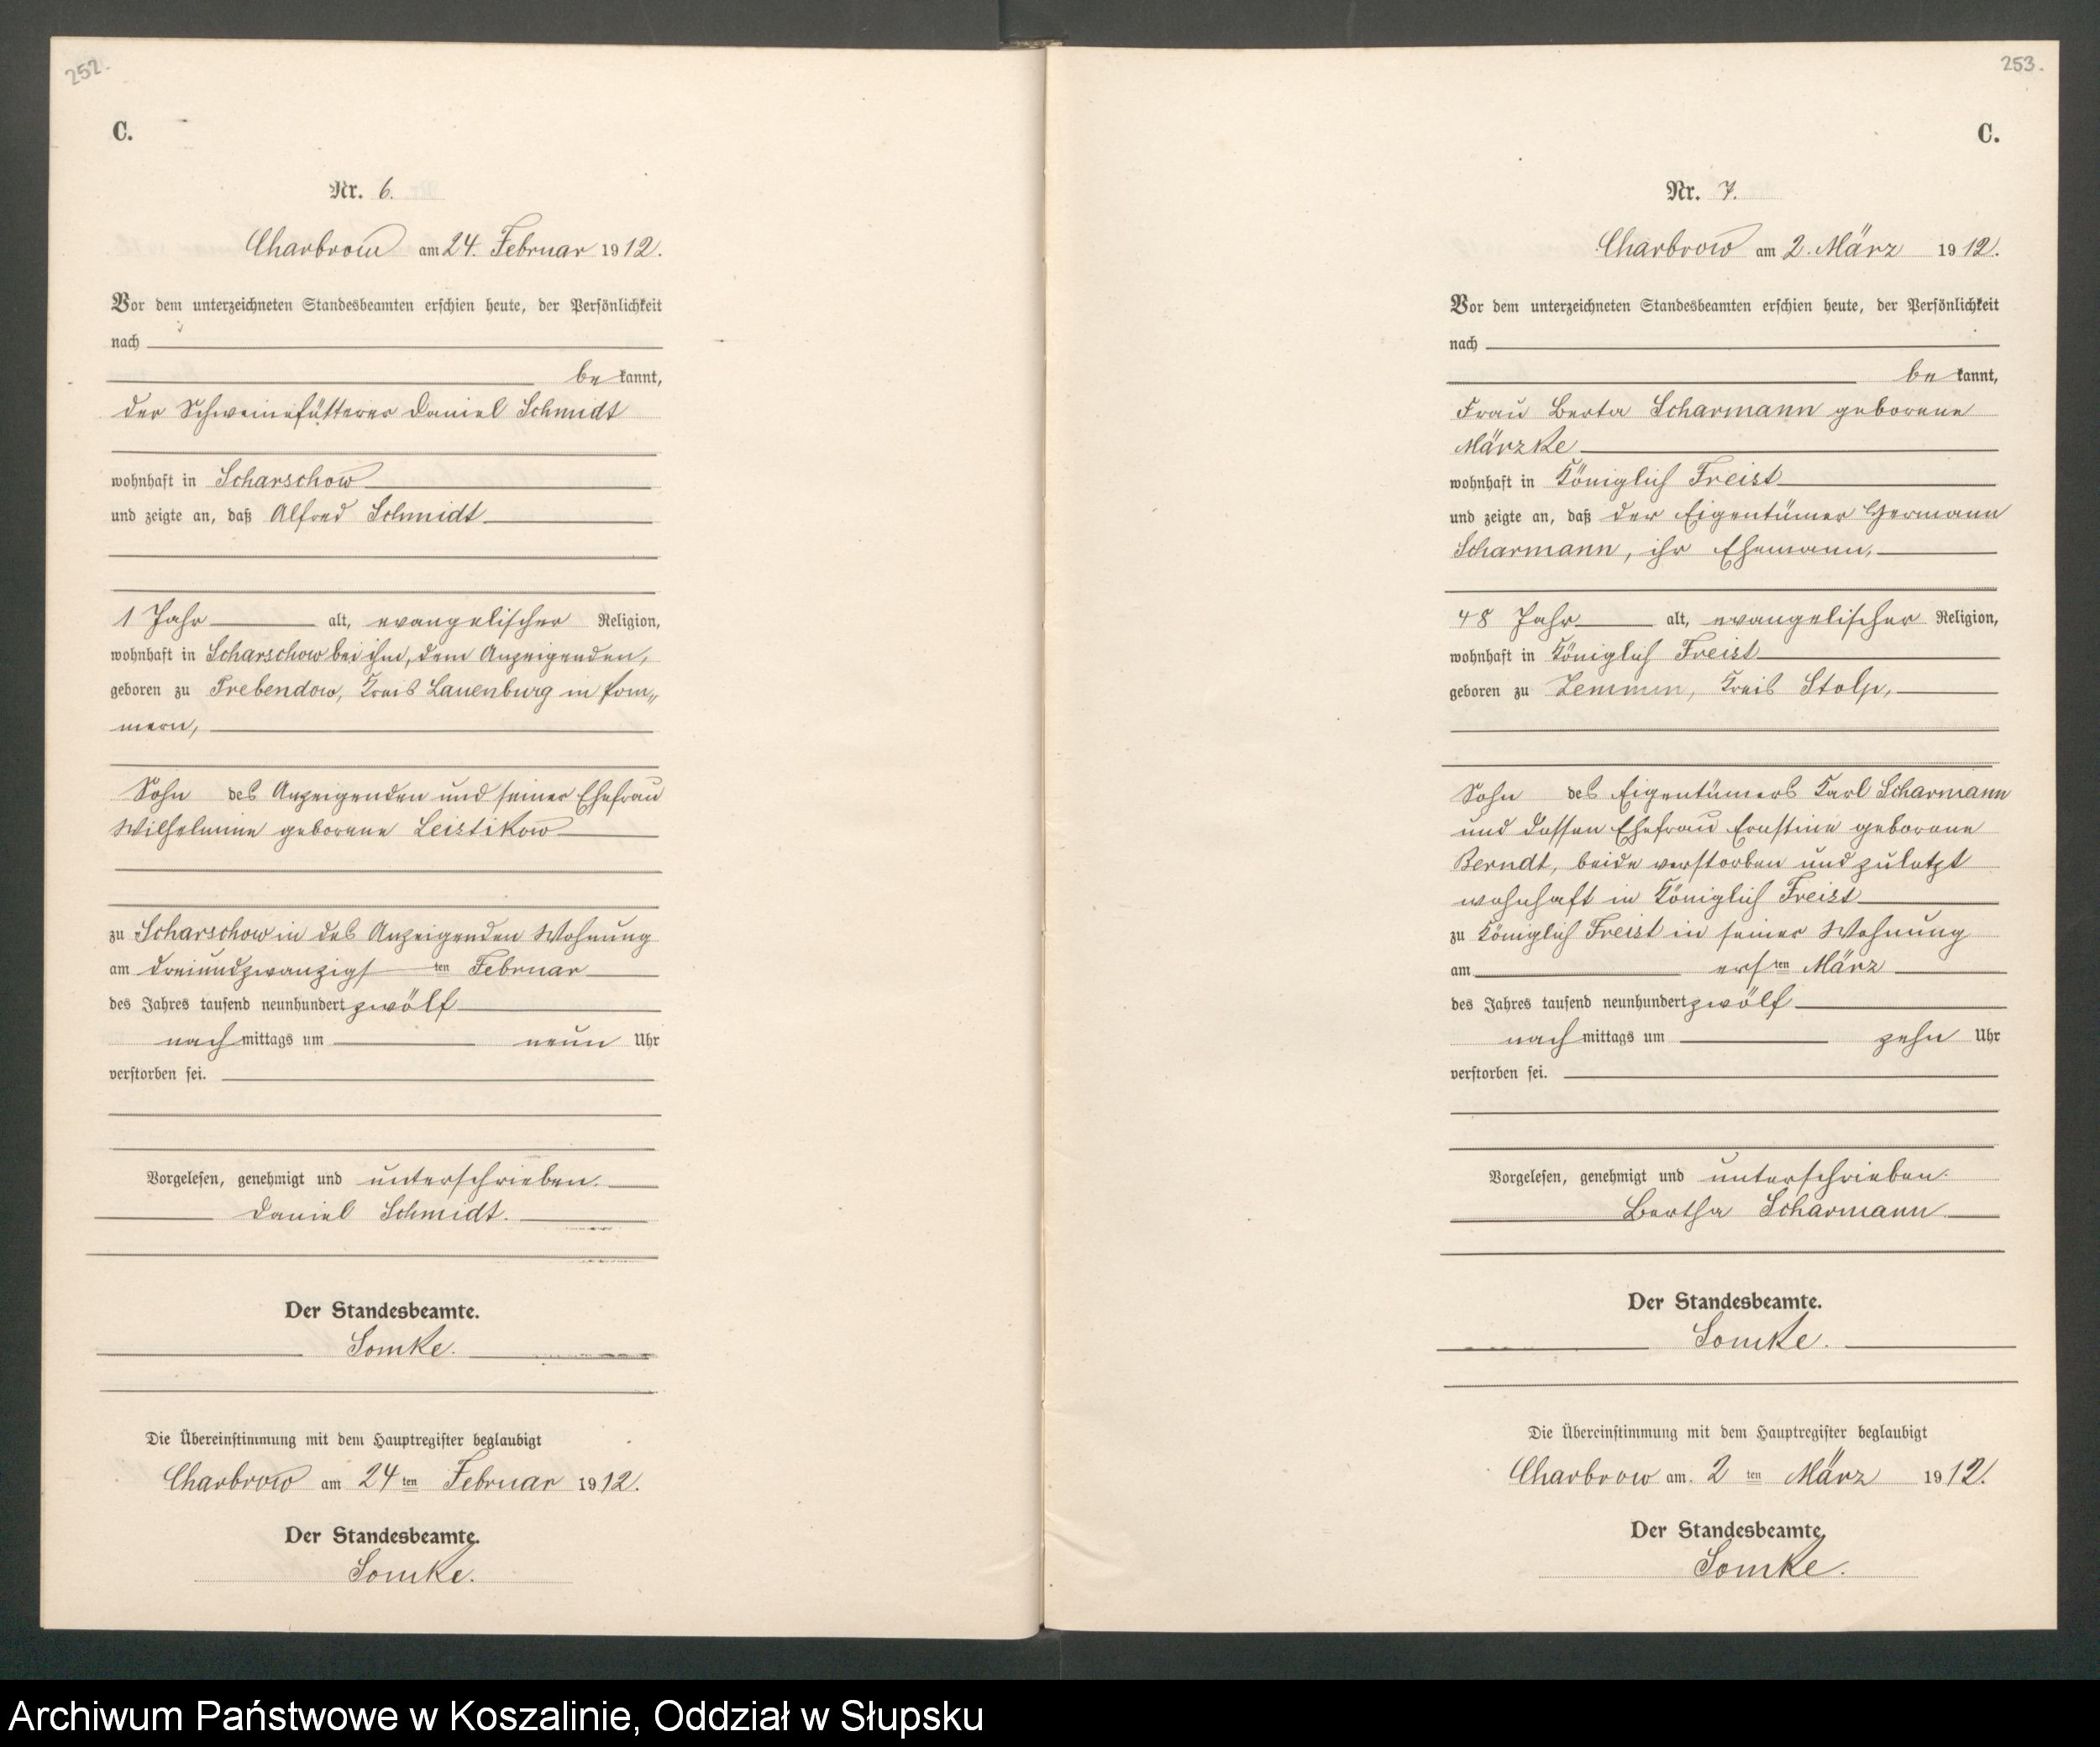 252.
C.
Nr. 6.
Charbrow am 24. Februar 1912.
Vor dem unterzeichneten Standesbeamten erschien heute, der Persönlichkeit
nach
be kannt,
der Schweinefütterer Daniel Schmidt
wohnhaft in Scharschow
und zeigte an, daß Alfred Schmidt
1 Jahr alt, evangelischer Religion,
wohnhaft in Scharschow bei ihm, dem Anzeigenden,
geboren zu Trebendow, Kreis Lauenburg in Pom„
mern,
Sohn des Anzeigenden und seiner Ehefrau
Wilhelmine geborene Leistikow
zu Scharschow in des Anzeigenden Wohnung
am dreiundzwanzigsten Februar
des Jahres tausend neunhundert zwölf
nachmittags um neun Uhr
verstorben sei.
Vorgelesen, genehmigt und unterschrieben.
Daniel Schmidt.
Der Standesbeamte.
Somke.
Die Übereinstimmung mit dem Hauptregister beglaubigt
Charbrow am 24ten Februar 1912.
Der Standesbeamte.
Somke.
253.
C.
Nr. 7.
Charbrow am 2. März 1912.
Vor dem unterzeichneten Standesbeamten erschien heute, der Persönlichkeit
nach
be kannt,
Frau Berta Scharmann geborene
Märzke
wohnhaft in Königlich Freist
und zeigte an, daß der Eigentümer Hermann
Scharmann, ihr Ehemann,
48 Jahr alt, evangelischer Religion,
wohnhaft in Königlich Freist
geboren zu Zemmin, Kreis Stolp,
Sohn des Eigentümers Karl Scharmann
und dessen Ehefrau Ernstine geborene
Berndt, beide verstorben und zuletzt
wohnhaft in Königlich Freist
zu Königlich Freist in seiner Wohnung
am ersten März
des Jahres tausend neunhundert zwölf
nachmittags um zehn Uhr
verstorben sei.
Vorgelesen, genehmigt und unterschrieben.
Bertha Scharmann
Der Standesbeamte.
Somke.
Die Übereinstimmung mit dem Hauptregister beglaubigt
Charbrow am 2ten März 1912.
Der Standesbeamte.
Somke.
Archiwum Państwowe w Koszalinie, Oddział w Słupsku